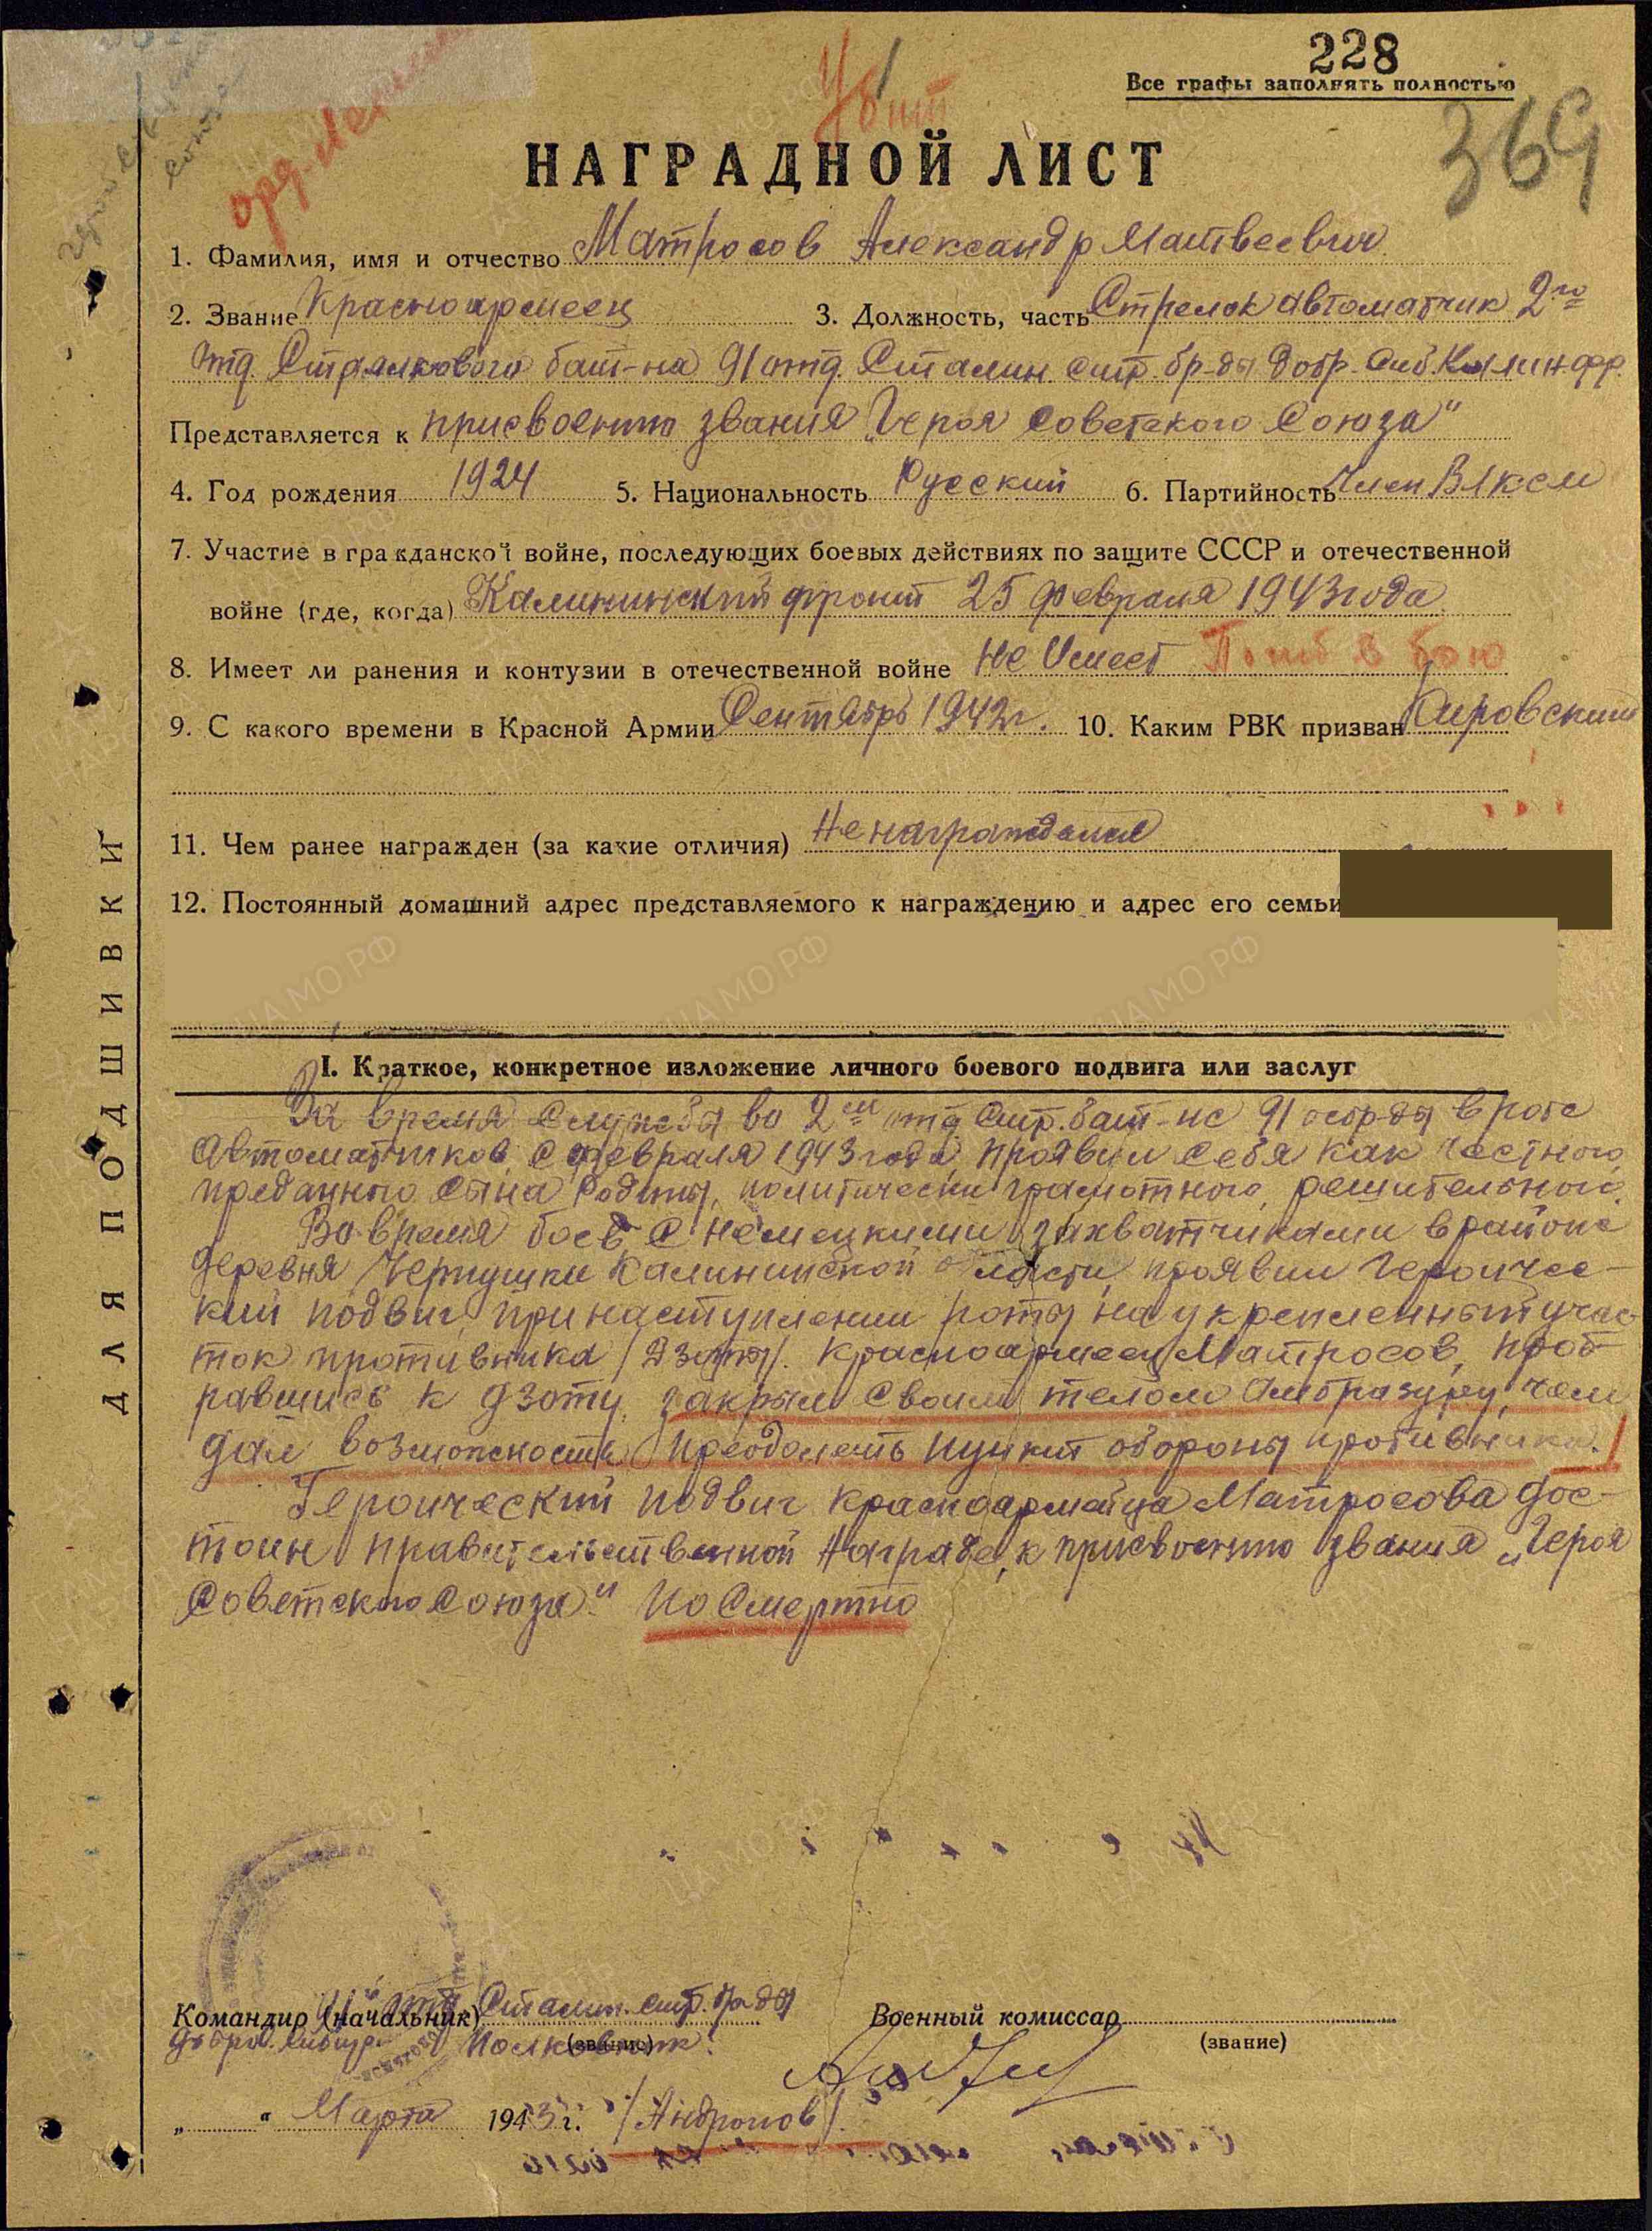 228
Все графы заполнять полностью
Убит
369
орд. Ленина
НАГРАДНОЙ ЛИСТ
1. Фамилия, имя и отчество Матросов Александр Матвеевич
2. Звание Красноармеец 3. Должность, часть Стрелок автоматчик 2го
отд. Стрелкового бат-на 91 отд. Сталин. стр. бр-ды добр. сиб. Калин. фр.
Представляется к присвоению звания „Героя Советского Союза"
4. Год рождения 1924 5. Национальность Русский 6. Партийность Член ВЛКСМ
7. Участие в гражданской войне, последующих боевых действиях по защите СССР и отечественной
войне (где, когда) Калининский фронт 25 февраля 1943 года
8. Имеет ли ранения и контузии в отечественной войне Не Имеет Погиб в бою
9. С какого времени в Красной Армии Сентябрь 1942 г. 10. Каким РВК призван Кировский
11. Чем ранее награжден (за какие отличия) Не награждался
12. Постоянный домашний адрес представляемого к награждению и адрес его семьи
ДЛЯ ПОДШИВКИ
I. Краткое, конкретное изложение личного боевого подвига или заслуг
За время службы во 2ом отд. Стр. бат-не 91 осбр-ды в роте
автоматчиков с февраля 1943 года, проявил себя как честного
преданного сына Родины, политически грамотного, решительного.
Во время боев с немецкими захватчиками в районе
деревня Чернушки Калининской области, проявил героичес-
кий подвиг, при наступлении роты на укрепленный учас
ток противника /Дзоты/. Красноармеец Матросов, проб
равшись к дзоту, закрыл своим телом Амбразуру, чем
дал возможность преодолеть пункт обороны противника.
Героический подвиг красноармейца Матросова дос-
тоин правительственной Награде, к присвоению звания „Героя
Советского Союза" по Смертно
Командир (начальник) 91 отд. Сталин. стр. бр-ды Военный комиссар
добров. сибир. Полковник (звание) (звание)
„ " Марта 1943 г. /Андронов/.